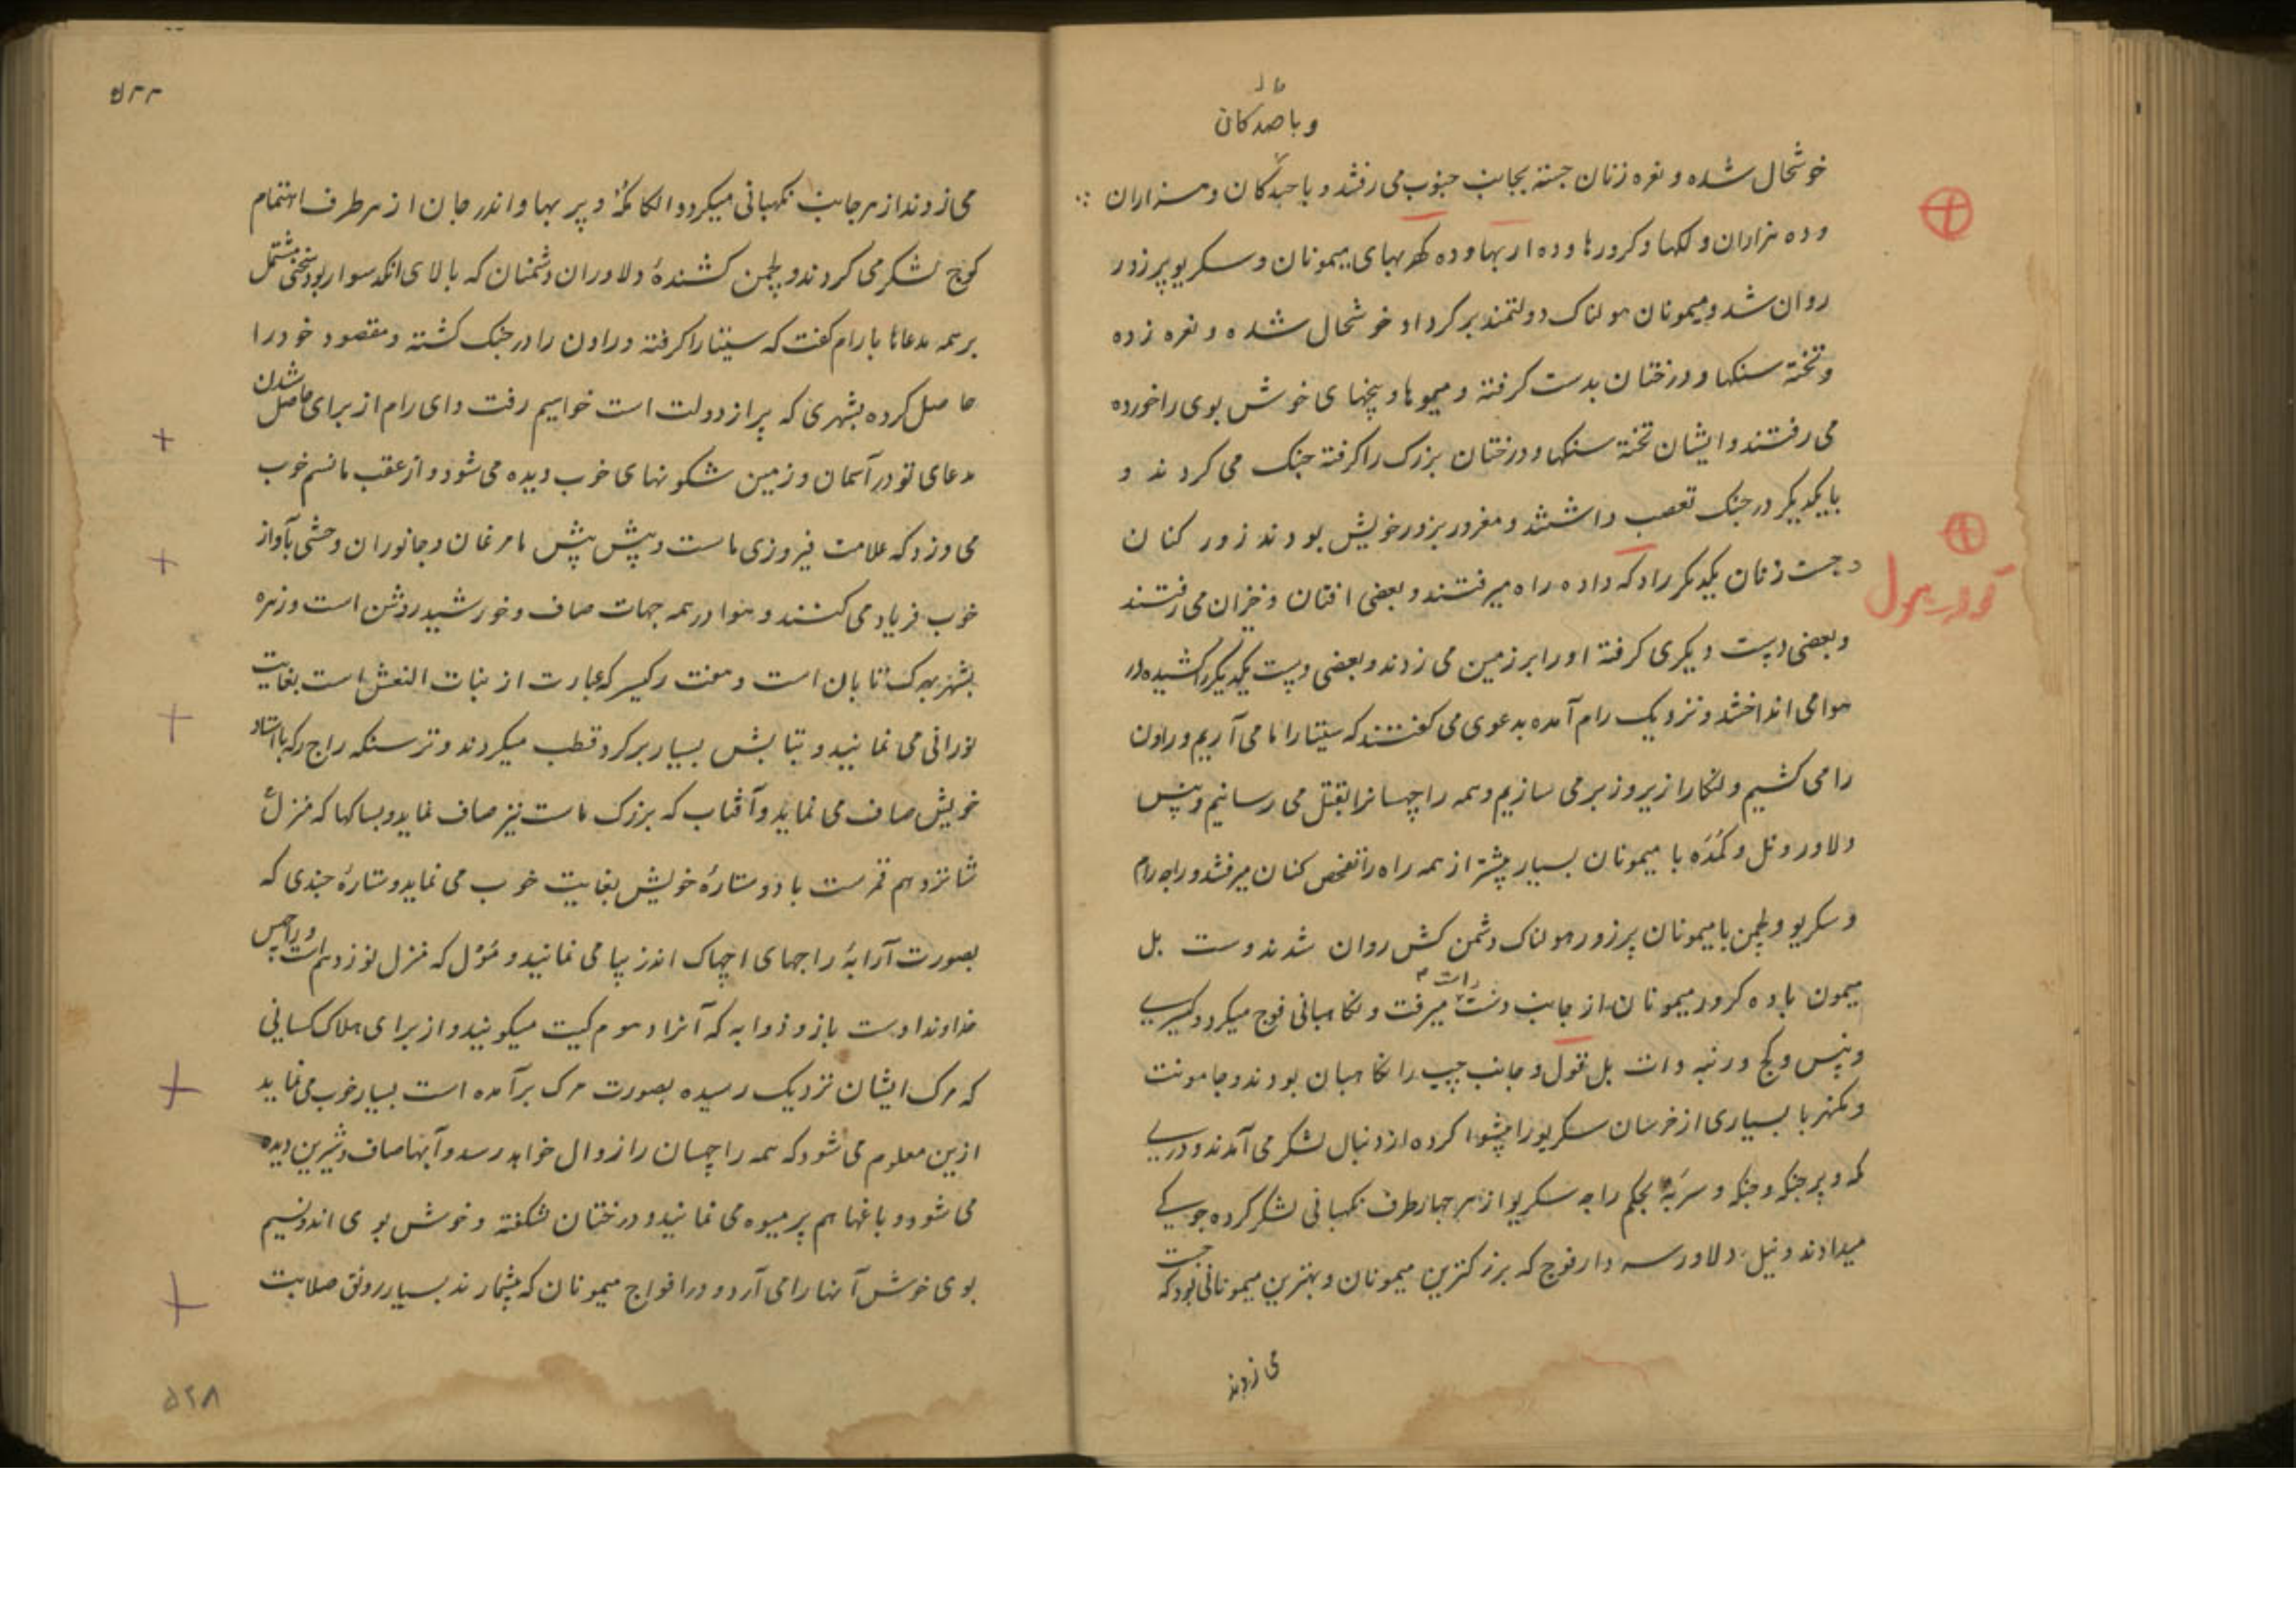 و باصد کان
خوشحال شده و نعره زنان جسته بجانب جنوب می رفتند و با صد کان و هزاران
و ده هزاران و لکها و کرورها و ده اربها و ده کهربهای میمونان و سکریو پرزور
روان شد و میمونان هولناک دولتمند بر کرد او خوشحال شده و نعره زده
و تخته سنکها و درختان بدست کرفته و میوها و بیخهای خوش بوی را خورده
می رفتند و ایشان تخته سنکها و درختان بزرک را کرفته جنک می کردند و
بایکدیکر در جنک تعصب داشتند و مغرور بزور خویش بودند زور کنان
و جست زنان یکدیکر را دکه داده راه میرفتند و بعضی افتان و خیزان می رفتند
و بعضی دست دیکری کرفته او را بر زمین می زدند و بعضی دست یکدیکر را کشیده در
هوا می انداختند و نزدیک رام آمده بدعوی می کفتند که سیتا را ما می آریم و راون
را می کشیم و لنکا را زیر و زبر می سازیم و همه راچهسانرا بقتل می رسانیم و پنس
دلاور و نل و کمده با میمونان بسیار پیشتر از همه راه را تفحص کنان میرفتند و راجه رام
و سکریو و لچمن با میمونان پرزور هولناک دشمن کش روان شدند و ست بل
میمون با ده کرور میمونان از جانب دست راست میرفت و نکاهبانی فوج میکرد و کیسری
و پنس و کج و رنبه و ات بل قول و جانب چپ را نکاهبان بودند و جامونت
و با بسیاری از خرسان سکریو را پیشوا کرده از دنبال لشکر می آمدند و
راجه سکریو از هر چهار طرف نکهبانی لشکر کرده
میدادند و نیل دلاور سردار فوج که بزرکترین میمونان و بهترین میمونانی بود که جست
می زدند
قول
می زدند از هر جانب نکهبانی میکرد و و اندر جان از هر طرف اهتمام
کوچ لشکر می کردند و لچمن کشندهٔ دلاوران دشمنان که بالای انکد سوار بود سخنی مشتمل
بر همه مدعاها با رام کفت که سیتا را کرفته و راون را در جنک کشته و مقصود خود را
حاصل کرده بشهری که پر از دولت است خواهیم رفت و ای رام از برای حاصل شدن
مدعای تو در آسمان و زمین شکونهای خوب دیده می شود و از عقب ما نسیم خوب
می وزد که علامت فیروزی ماست و پیش پیش ما مرغان و جانوران وحشی بآواز
خوب فریاد می کنند و هوا در همه جهات صاف و خورشید روشن است و زهره
تابان است و هفت رکیسر که عبارت از بنات النعش است بغایت
نورانی می نمایند و تبابش بسیار بر کرد قطب میکردند و ترسنکه راج رکه با استاد
خویش صاف می نماید و آفتاب که بزرک ماست نیز صاف نماید و بساکها که منزل
شانزدهم قمرست با دو ستارهٔ خویش بغایت خوب می نماید و ستارهٔ چندی که
بصورت آرابهٔ راجهای اچهاک اندر زیبا می نمایند و مول که منزل نوزدهم است و راچهس
خداوند اوست با زوذوابه که آنرا دهوم کیت میکویند و از برای هلاک کسانی
که مرک ایشان نزدیک رسیده بصورت مرک برآمده است بسیار خوب می نماید
ازین معلوم می شود که همه راچهسان را زوال خواهد رسد و آبها صاف و شیرین دیده
می شود و باغها هم پر میوه می نمایند و درختان شکفته و خوش بوی اند و نسیم
بوی خوش آنها را می آرد و در افواج میمونان که بیشمارند بسیار رونق صلابت
۵۲۸